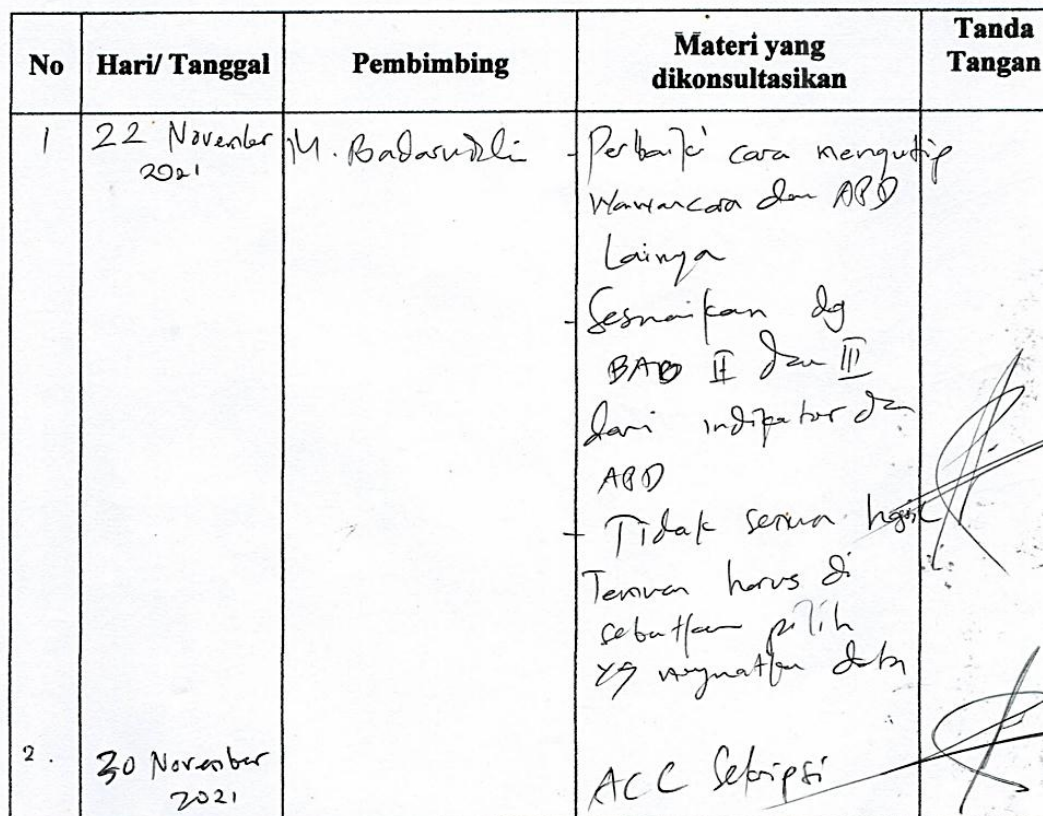 No Hari/ Tanggal Pembimbing Materi yang dikonsultasikan Tanda Tangan
1 22 November 2021 M. Badarudin
- Perbaiki cara mengutip
Wawancara dan APD
Lainya
- Sesuaikan dg
BAB II dan III
dari indikator dan
APD
- Tidak semua hasil
Temuan harus di
sebutkan pilih
yg menguatkan data
2. 30 November 2021
ACC Sekripsi